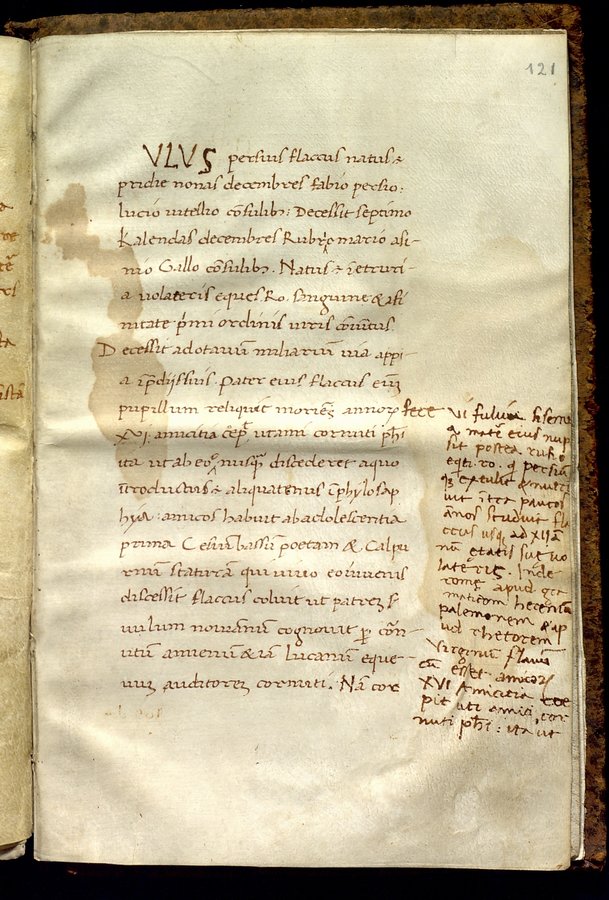 121
VLVS persius flaccus natus ÷
pridie nonas decembres fabio persio:
lucio uitellio cōsulib; Decessit septimo
Kalendas decembres Rubrio mario asi-
nio Gallo cōsulib; Natus ÷ ī etruri-
a uolateris eques Ro. sanguine & afi
nitate p̄mi ordinis uiris cōiūctus.
Decessit ad otauum miliarium uia appi-
a ī p̄diis suis. Pater eius flaccus eū
pupillum reliquit moriēs annorꝝ fere
XVI. amicitia cępit uti anei cornuti ph̄i
ita ut ab eo nusq̄ discederet a quo
ītroductus ÷ aliquatenus ī phylosap
hya: amicos habuit ab adolescentia
prima Cesium bassum poetam & Calpu
rnium staturam qui uiuo eo iuuenis
discessit flaccus coluit ut patrem s
uulum nouianum cognouit p̱ cōrn-
utum anneum & iā lucanum eque-
uum auditorem cornuti. Nā cor
VI fulvia sisenia
a matē eius nup
sit postea fusio
eqti. ro. q persiū
quoq; extulit
uit ītra paucos
ānos studuit fla
ccus usq; ad XII ān
nū etatis suę uo
lateris. Inde
romę apud gra
maticum
palemonem & ap
ud rhetorem
Virginiū flauiū
cū esset annorꝝ
XVI Amicitia coe
pit uti annei cor
nuti ph̄i: ita ut